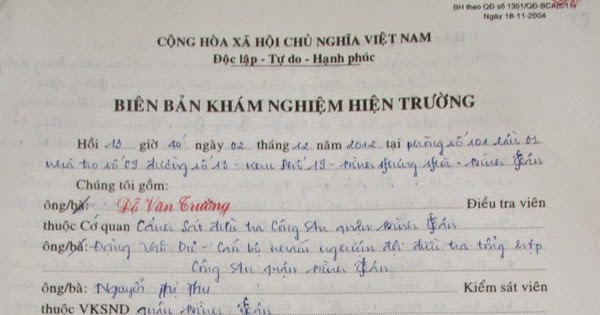 BH theo QĐ số 1351/QĐ-BCA(C11)
Ngày 18-11-2004
CỘNG HÒA XÃ HỘI CHỦ NGHĨA VIỆT NAM
Độc lập - Tự do - Hạnh phúc
BIÊN BẢN KHÁM NGHIỆM HIỆN TRƯỜNG
Hồi 13 giờ 10 ngày 02 tháng 12 năm 2012 tại phòng số 101 lầu 01
nhà trọ số 03 đường số 13 - khu phố 19 - Bình Hưng Hòa - Bình Tân
Chúng tôi gồm:
ông/bà: Đỗ Văn Trường Điều tra viên
thuộc Cơ quan Cảnh sát điều tra Công An quận Bình Tân
ông/bà: Đặng Văn Dư - Cán bộ đội điều tra tổng hợp
Công An quận Bình Tân
ông/bà: Nguyễn Thị Thu Kiểm sát viên
thuộc VKSND quận Bình Tân